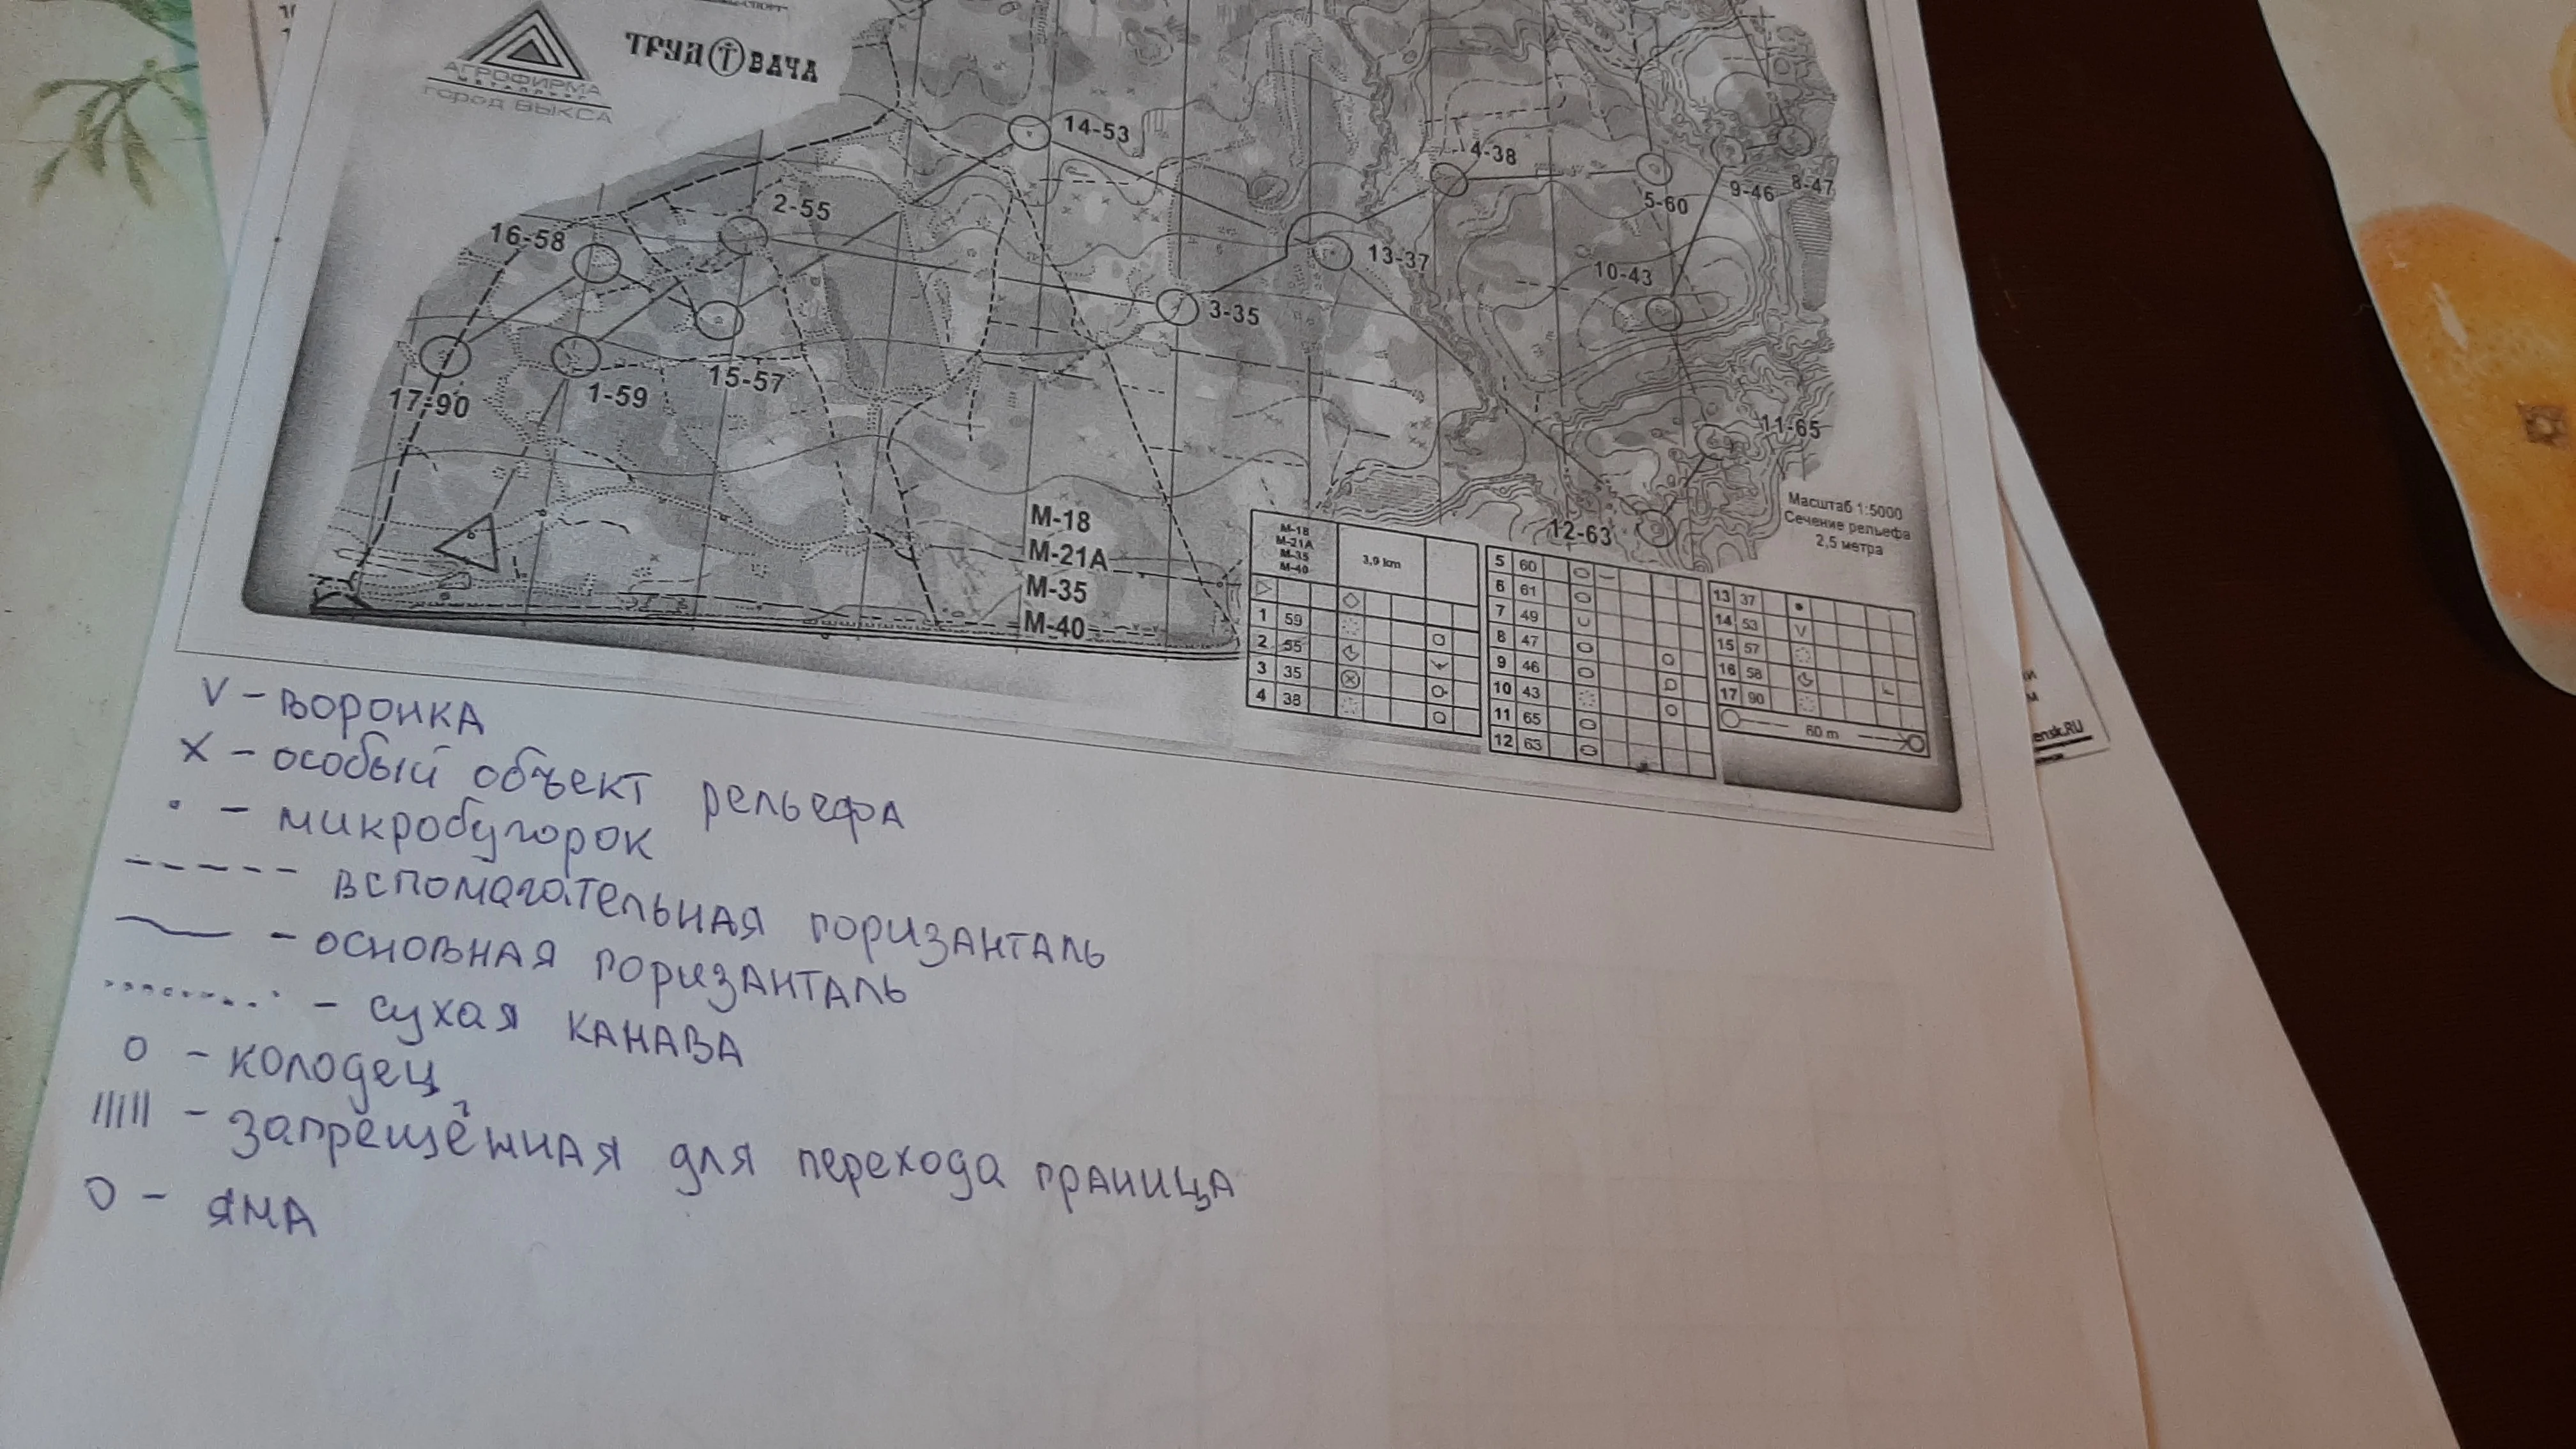 АГРОФИРМА
МЕТАЛЛУРГ
город ВЫКСА
ТРУД Т ВАЧА
14-53
4-38
2-55
5-60
9-46
8-47
16-58
13-37
10-43
3-35
17-90
1-59
15-57
11-65
12-63
Масштаб 1:5000
Сечение рельефа
2,5 метра
М-18
М-21А
М-35
М-40
М-18
М-21А
М-35
М-40
3,9 km
1 59
2 55
3 35
4 38
5 60
6 61
7 49
8 47
9 46
10 43
11 65
12 63
13 37
14 53
15 57
16 58
17 90
60 m
ensk.RU
V - воронка
X - особый объект рельефа
· - микробугорок
----- вспомагательная горизанталь
- основная горизанталь
......... - сухая канава
о - колодец
|||||| - запрещённая для перехода граница
О - яма